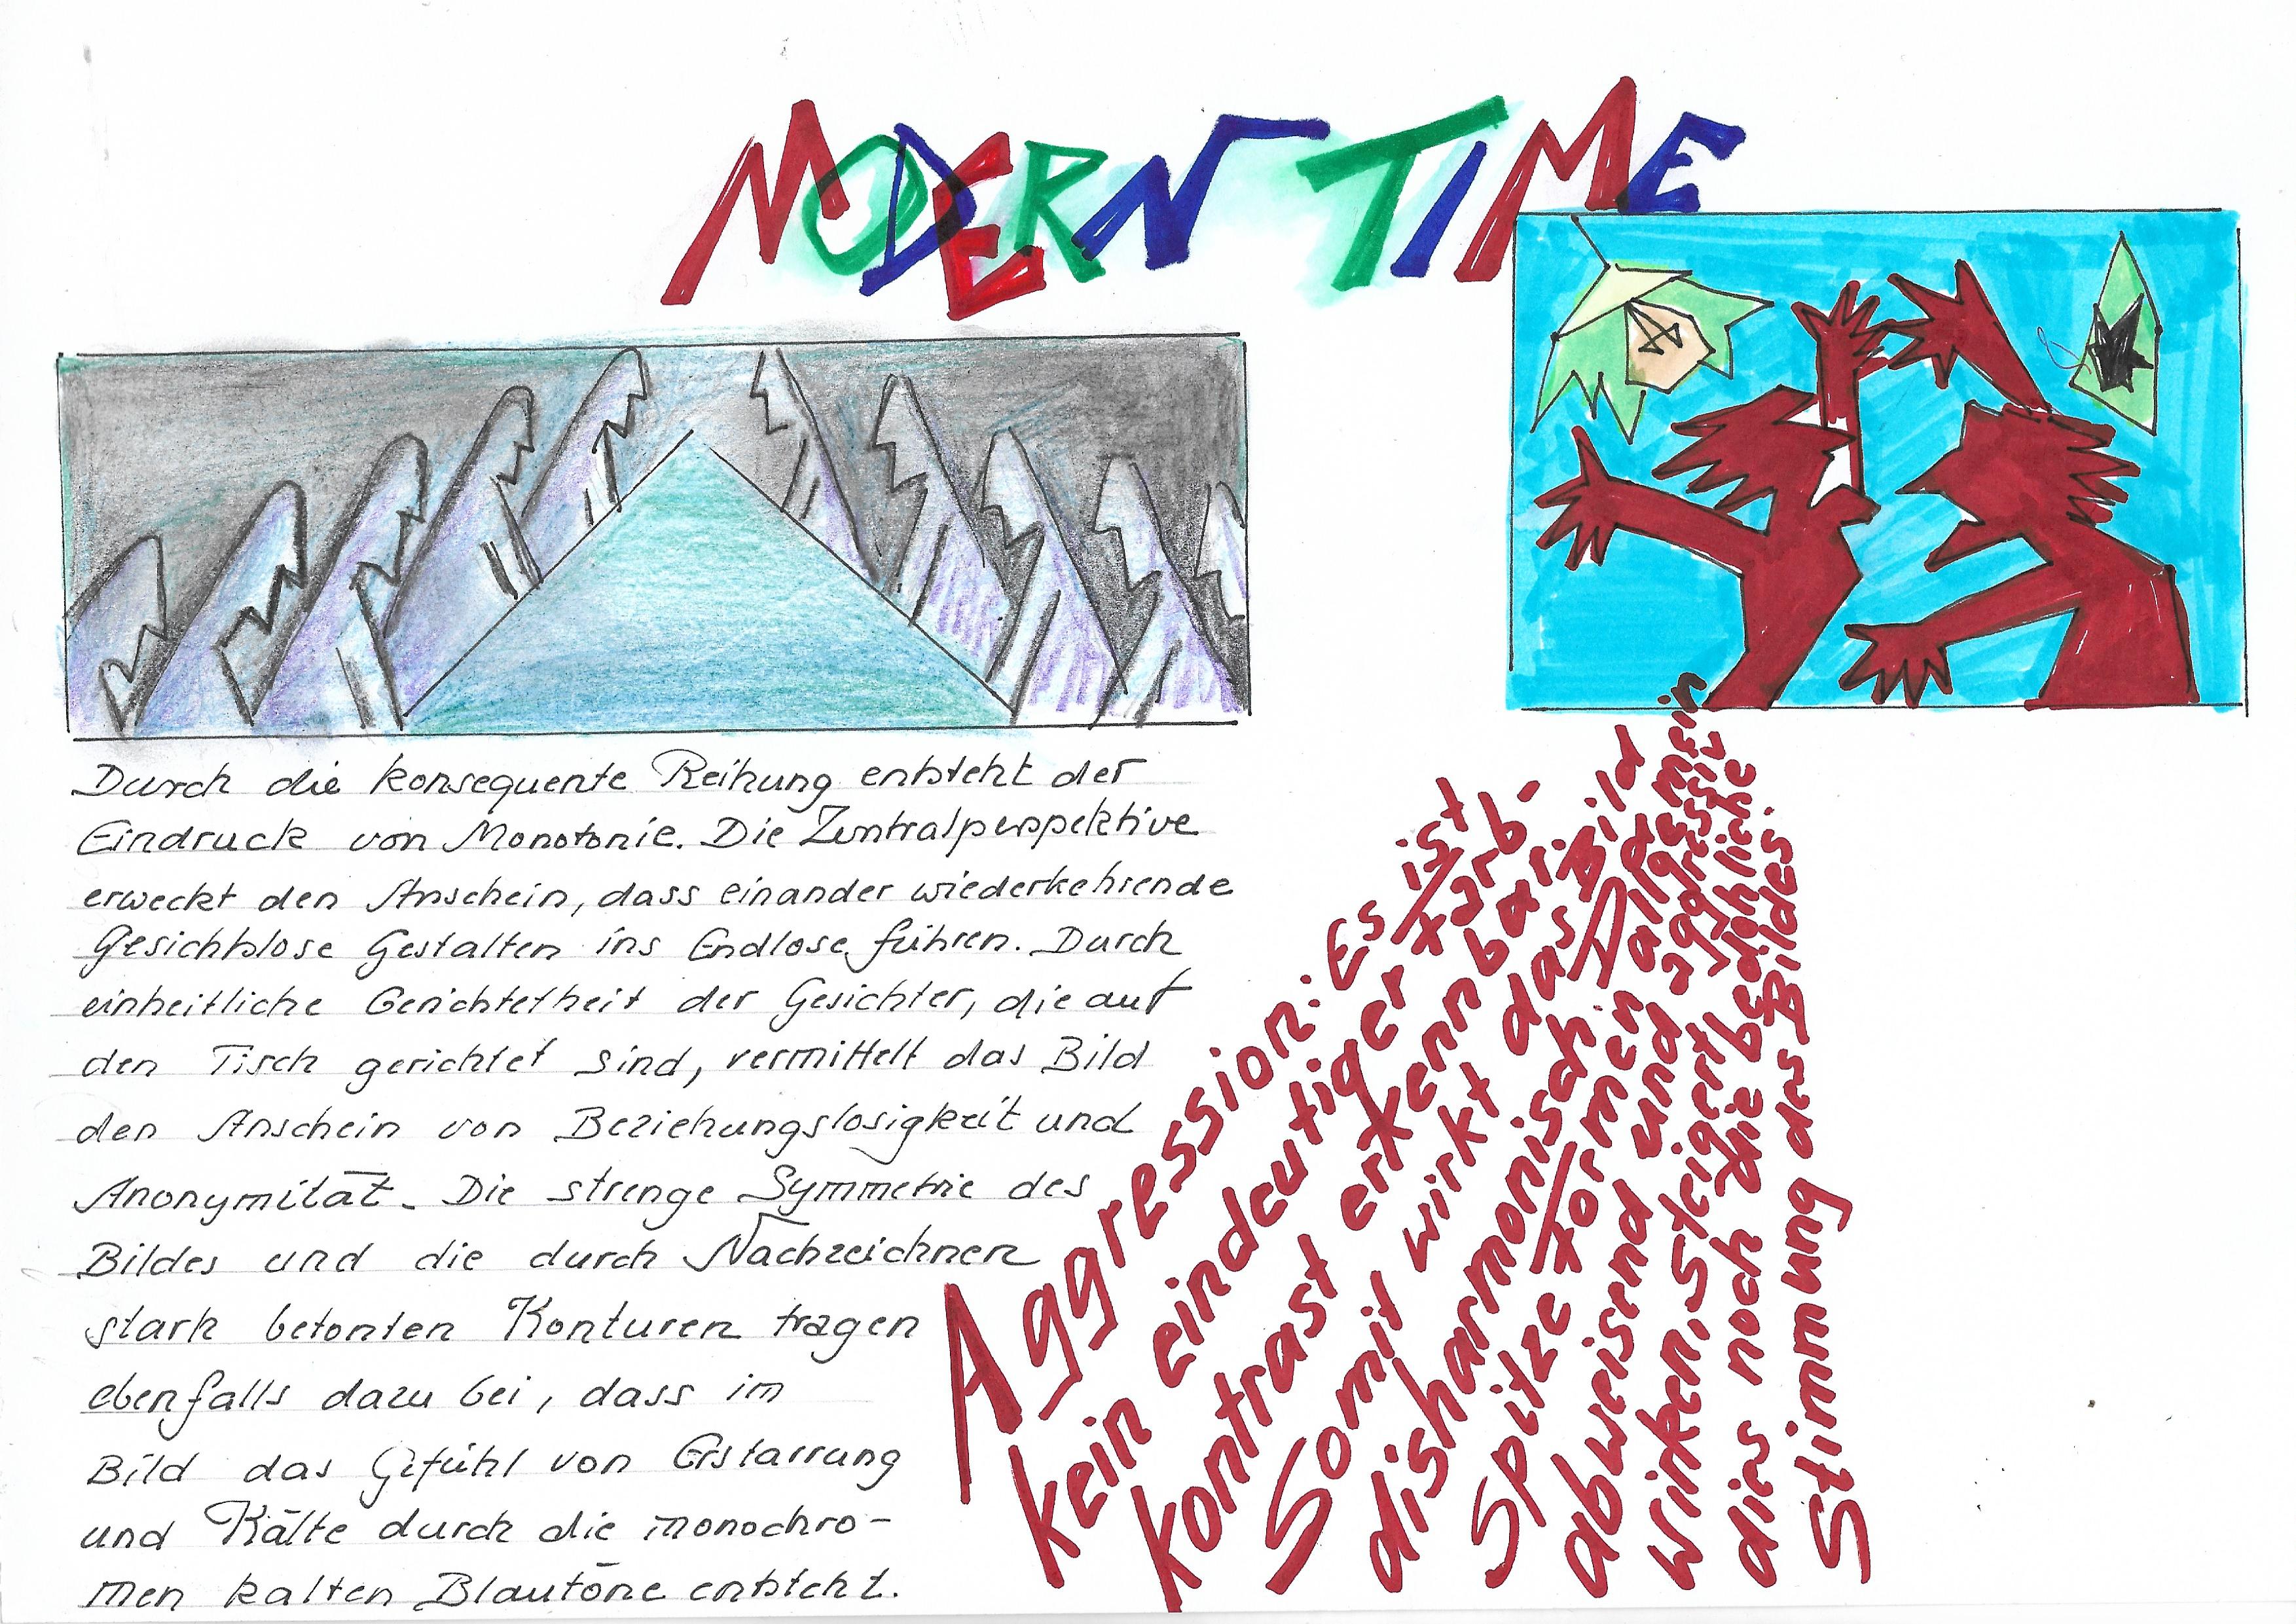 MODERN TIME
Durch die konsequente Reihung entsteht der
Eindruck von Monotonie. Die Zentralperspektive
erweckt den Anschein, dass einander wiederkehrende
Gesichtslose Gestalten ins Endlose führen. Durch
einheitliche Gerichtetheit der Gesichter, die auf
den Tisch gerichtet sind, vermittelt das Bild
den Anschein von Beziehungslosigkeit und
Anonymität. Die strenge Symmetrie des
Bildes und die durch Nachzeichnen
stark betonten Konturen tragen
ebenfalls dazu bei, dass im
Bild das Gefühl von Erstarrung
und Kälte durch die monochro-
men kalten Blautöne entsteht.
Aggression: Es ist
kein eindeutiger Farb-
kontrast erkennbar.
Somit wirkt das Bild
disharmonisch. Da
Spitze Formen allgemein
abweisend und aggressiv
wirken, steigert
dies noch die bedrohliche
Stimmung des Bildes.